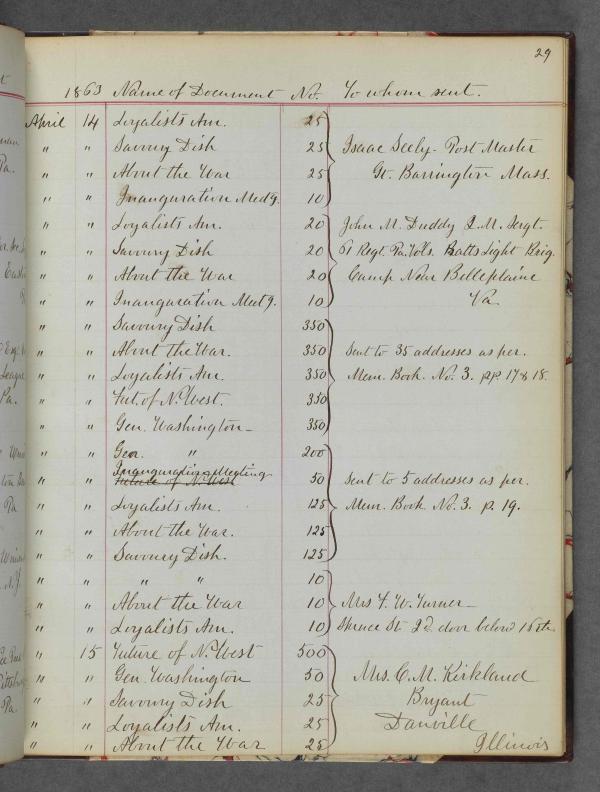 29
1863 Name of Document No. To whom sent.
April 14 Loyalists Am. 25
" " Savoury Dish 25 Isaac Seely- Post Master
" " About the War 25 Gt. Barrington Mass.
" " Inauguration Meet'g. 10
" " Loyalists Am. 20 John M. Duddy Q.M. Sergt.
" " Savoury Dish 20 61 Regt. Pa. Vols. Batts Light Brig.
" " About the War 20 Camp Near Belleplaine
" " Inauguration Meet'g. 10 Va.
" " Savoury Dish 350
" " About the War. 350 Sent to 35 addresses as per.
" " Loyalists Am. 350 Mem. Book. No. 3. pp. 17 & 18.
" " Fut. of N. West. 350
" " Gen. Washington- 350
" " Gen. " 200
" " Inauguration Meeting 50 Sent to 5 addresses as per.
Future of N. West
" " Loyalists Am. 125 Mem. Book. No. 3. p. 19.
" " About the War. 125
" " Savoury Dish. 125
" " " " 10
" " About the War 10 Mrs F. W. Turner-
" " Loyalists Am. 10 Spruce St 2d door below 16th
" 15 Future of N. West 500
" " Gen. Washington 50 Mrs. C. M. Kirkland
" " Savoury Dish 25 Bryant
" " Loyalists Am. 25 Danville
" " About the War 25 Illinois